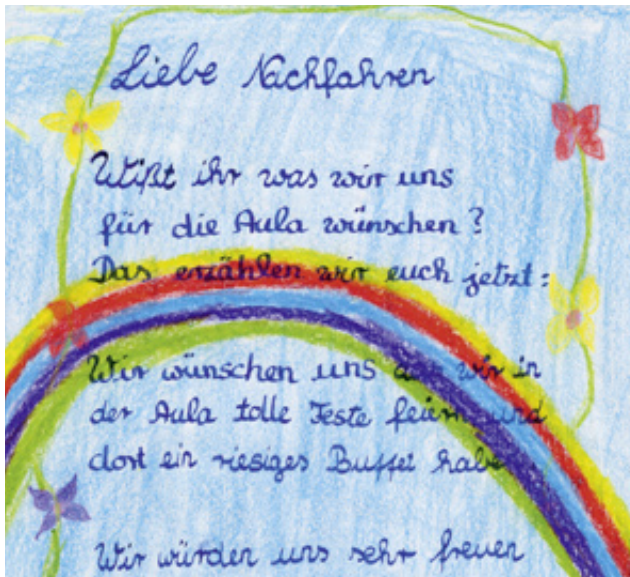 Liebe Nachfahren
Wißt ihr was wir uns
für die Aula wünschen?
Das erzählen wir euch jetzt:
Wir wünschen uns das wir in
der Aula tolle Feste feiern und
dort ein riesiges Buffet habe
Wir würden uns sehr freuen